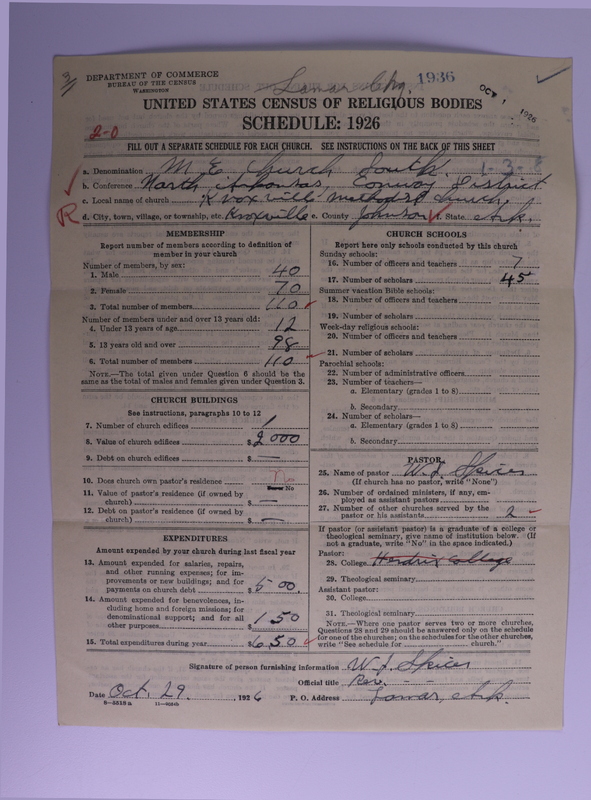 DEPARTMENT OF COMMERCE
BUREAU OF THE CENSUS
WASHINGTON
Lamar Chg. 1936
OCT 1 1926
UNITED STATES CENSUS OF RELIGIOUS BODIES
SCHEDULE: 1926
2-0
FILL OUT A SEPARATE SCHEDULE FOR EACH CHURCH. SEE INSTRUCTIONS ON THE BACK OF THIS SHEET
a. Denomination M E Church South. 1-3-8
b. Conference North Arkansas, Conway District
c. Local name of church Knoxville Methodist Church,
R d. City, town, village, or township, etc. Knoxville e. County Johnson f. State Ark.
MEMBERSHIP
Report number of members according to definition of
member in your church
Number of members, by sex:
1. Male 40
2. Female 70
3. Total number of members 110
Number of members under and over 13 years old:
4. Under 13 years of age 12
5. 13 years old and over 98
6. Total number of members 110
NOTE.—The total given under Question 6 should be the
same as the total of males and females given under Question 3.
CHURCH BUILDINGS
See instructions, paragraphs 10 to 12
7. Number of church edifices 1
8. Value of church edifices $2000
9. Debt on church edifices $ —
10. Does church own pastor's residence No
Yes or No
11. Value of pastor's residence (if owned by
church) $ —
12. Debt on pastor's residence (if owned by
church) $ —
EXPENDITURES
Amount expended by your church during last fiscal year
13. Amount expended for salaries, repairs,
and other running expenses; for im-
provements or new buildings; and for
payments on church debt $ 500.
14. Amount expended for benevolences, in-
cluding home and foreign missions; for
denominational support; and for all
other purposes $ 150
15. Total expenditures during year $650
CHURCH SCHOOLS
Report here only schools conducted by this church
Sunday schools:
16. Number of officers and teachers 7
17. Number of scholars 45
Summer vacation Bible schools:
18. Number of officers and teachers
19. Number of scholars
Week-day religious schools:
20. Number of officers and teachers
21. Number of scholars
Parochial schools:
22. Number of administrative officers
23. Number of teachers—
a. Elementary (grades 1 to 8)
b. Secondary
24. Number of scholars—
a. Elementary (grades 1 to 8)
b. Secondary
PASTOR
25. Name of pastor W. J. Spicer
(If church has no pastor, write "None")
26. Number of ordained ministers, if any, em-
ployed as assistant pastors
27. Number of other churches served by the
pastor or his assistants 2
If pastor (or assistant pastor) is a graduate of a college or
theological seminary, give name of institution below. (If
not a graduate, write "No" in the space indicated.)
Pastor:
28. College Hendrix College
29. Theological seminary
Assistant pastor:
30. College
31. Theological seminary
NOTE.—Where one pastor serves two or more churches,
Questions 28 and 29 should be answered only on the schedule
for one of the churches; on the schedules for the other churches,
write "See schedule for church."
Signature of person furnishing information W. J. Spicer
Official title Rev.
Date Oct. 29, 1926 P. O. Address Lamar, Ark.
8-5518a